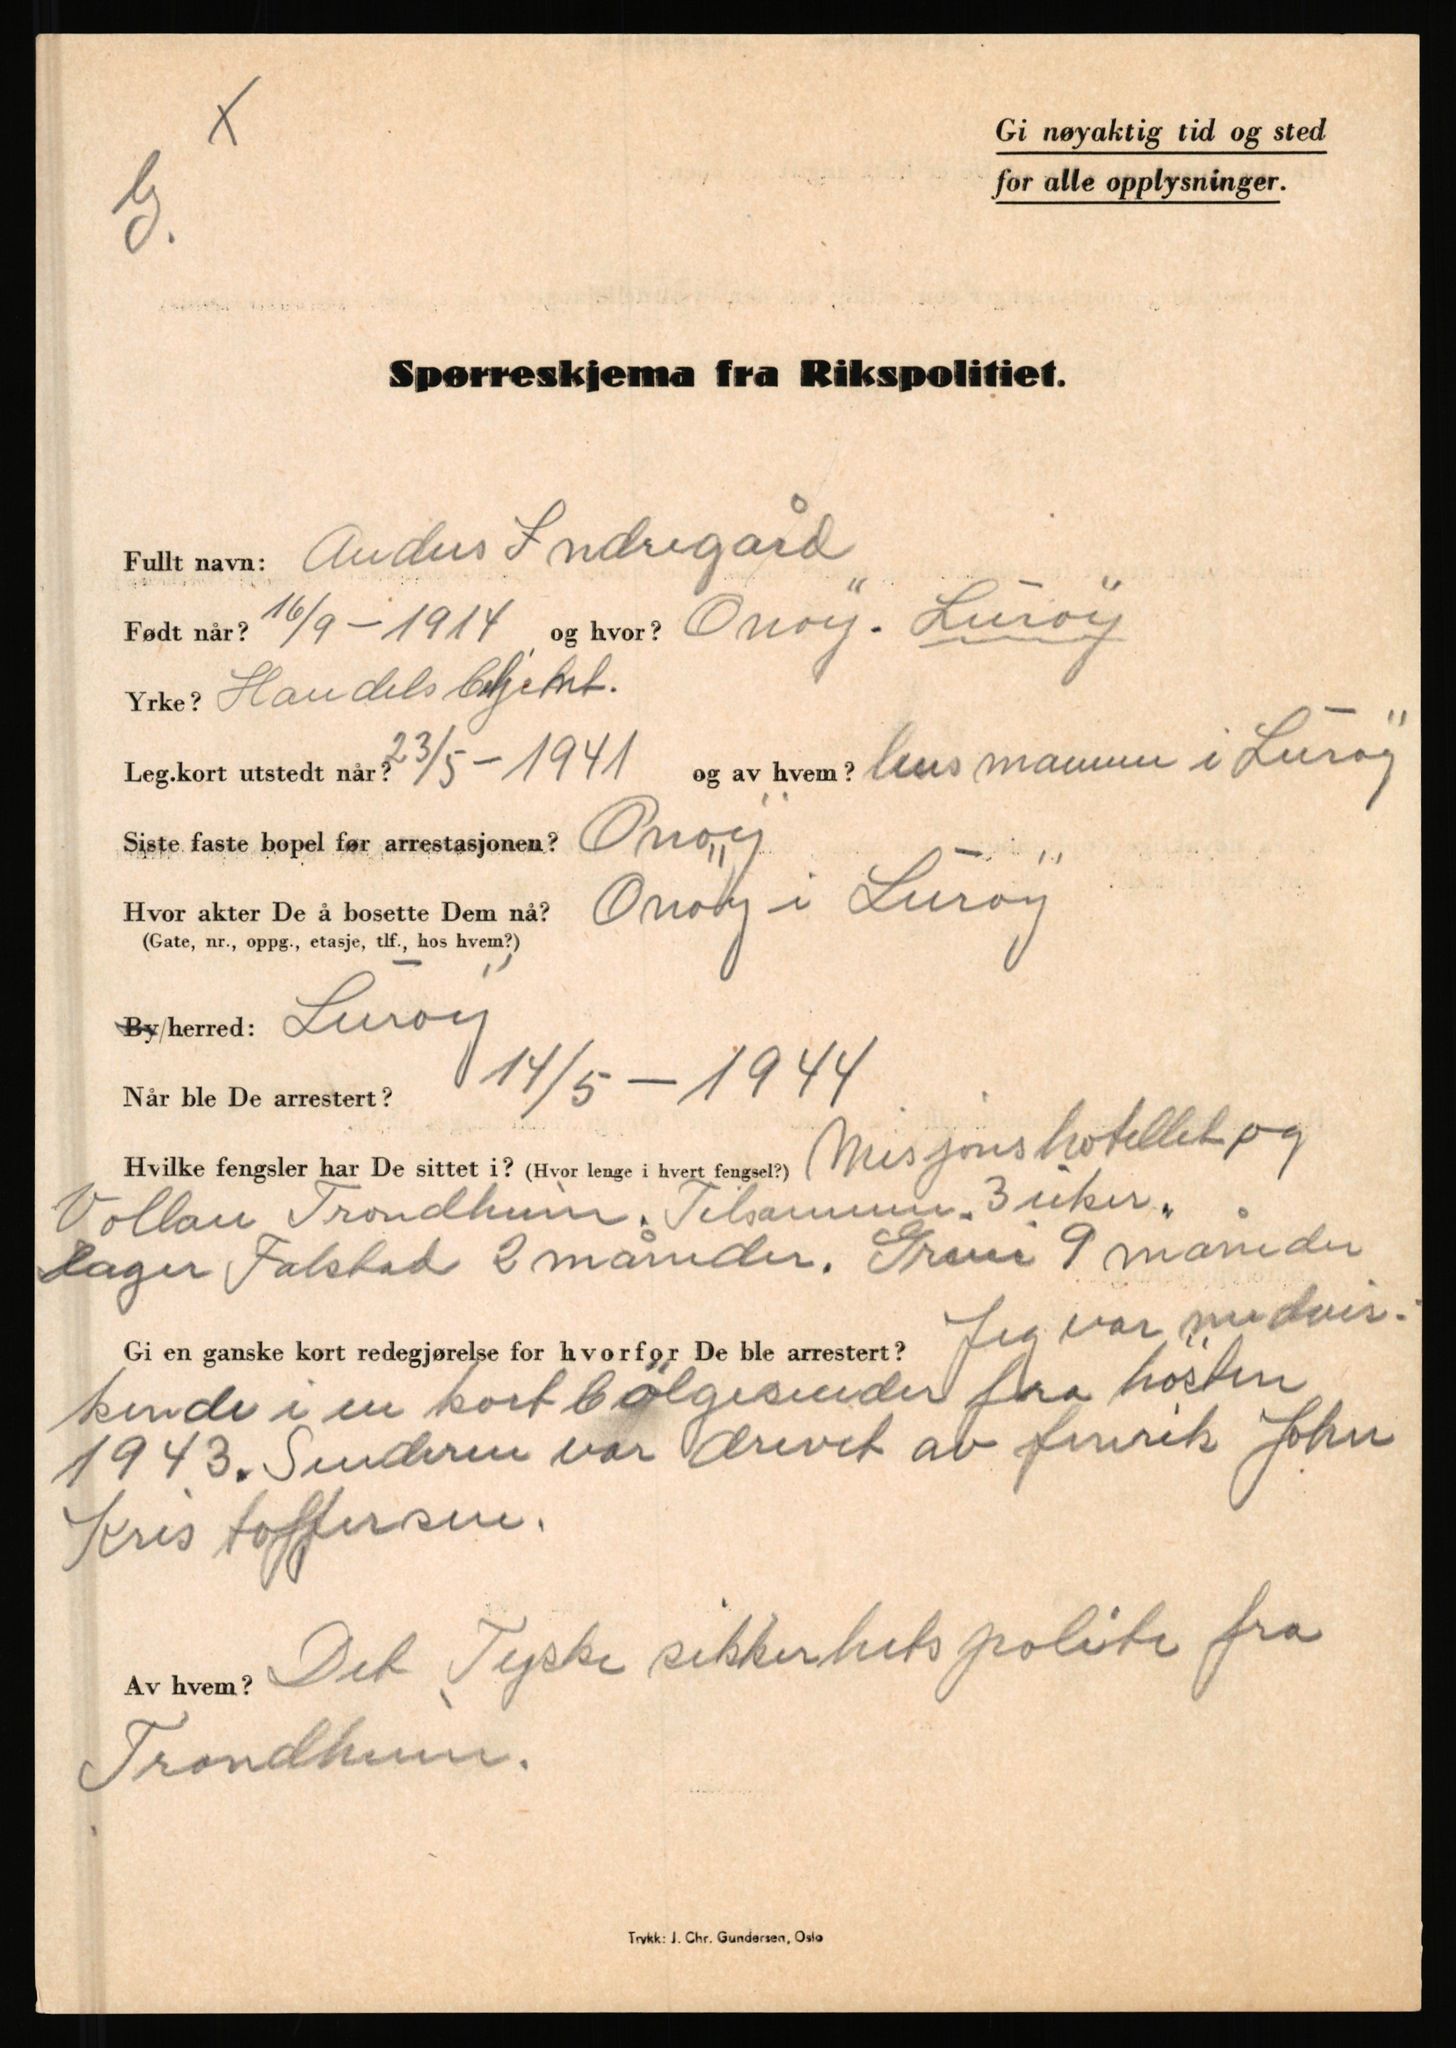 X
G.
Gi nøyaktig tid og sted
for alle opplysninger.
Spørreskjema fra Rikspolitiet.
Fullt navn: Anders Indregård
Født når? 16/9 – 1914 og hvor? Onöy. Luröy
Yrke? Handelsbetjent.
Leg.kort utstedt når? 23/5 – 1941 og av hvem? lensmannen i Luröy
Siste faste bopel før arrestasjonen? Onöy
Hvor akter De å bosette Dem nå? Onöy i Luröy
(Gate, nr., oppg., etasje, tlf., hos hvem?)
By/herred: Luröy
Når ble De arrestert? 14/5 – 1944
Hvilke fengsler har De sittet i? (Hvor lenge i hvert fengsel?) Misjonshotellet og
Vollan Trondheim. Tilsammen. 3 uker.
Lager Falstad 2 måneder. Grini 9 måneder
Gi en ganske kort redegjørelse for hvorfor De ble arrestert? Jeg var medvir-
kende i en kortbölgesender fra hösten
1943. Senderen var drevet av fenrik John
Kristoffersen.
Av hvem? Det Tyske sikkerhetspoliti fra
Trondheim.
Trykk: J. Chr. Gundersen, Oslo